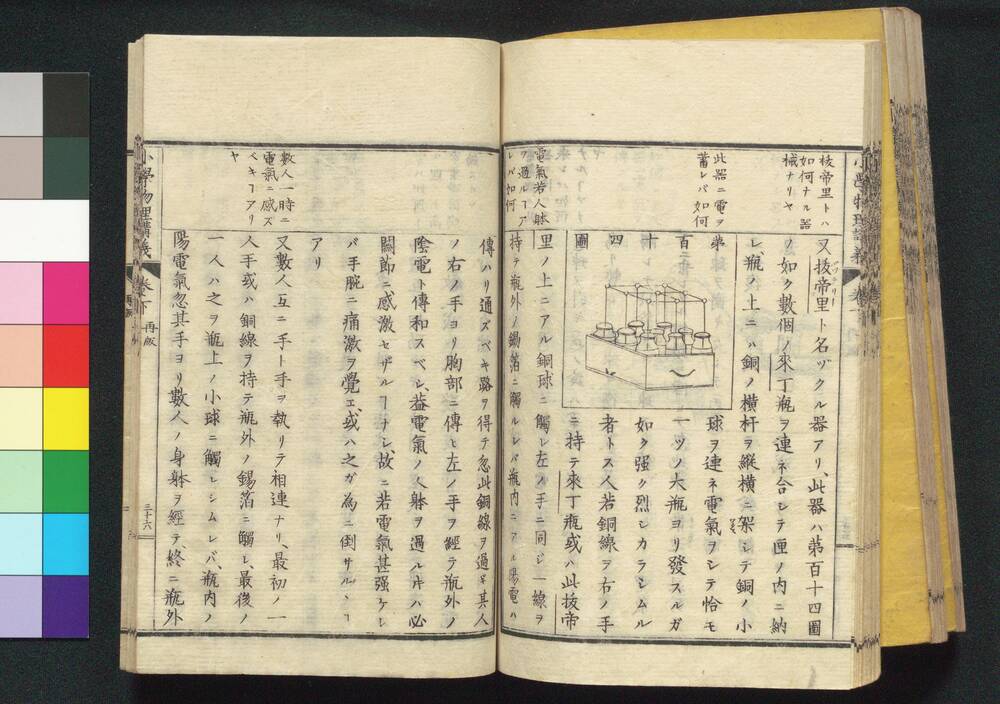 抜帝里トハ
如何ナル器
械ナリヤ
此器ニ電ヲ
蓄レバ如何
電氣若人躰
ヲ過ルヿア
レバ如何
又抜帝里ト名ヅクル器アリ、此器ハ第百十四圖
バッテリー
ノ如ク數個ノ來丁瓶ヲ連ネ合シテ匣ノ内ニ納
レ、瓶ノ上ニハ銅ノ横杆ヲ縱横ニ架シテ銅ノ小
球ヲ連ネ電氣ヲシテ恰モ
一ツノ大瓶ヨリ發スルガ
如ク强ク烈シカラシムル
者トス人若銅線ヲ右ノ手
ニ持テ來丁瓶或ハ此抜帝
第
百
十
四
圖
里ノ上ニアル銅球ニ觸レ左ノ手ニ同ジ一線ヲ
持テ瓶外ノ錫箔ニ觸ルレバ瓶内ニアル陽電ハ
小學物理講義
卷下
再版
三十六
數人一時ニ
電氣ニ感ズ
ベキヿアリ
ヤ
傳ハリ通ズベキ路ヲ得テ忽此銅線ヲ過ギ其人
ノ右ノ手ヨリ胸部ニ傳ヒ左ノ手ヲ經テ瓶外ノ
陰電ト傳和スベシ、蓋電氣ノ人躰ヲ過ルキハ必
關節ニ感激セザルヿナシ、故ニ若電氣甚强ケレ
バ手腕ニ痛激ヲ覺エ或ハ之ガ為ニ倒サルヽヿ
アリ
又數人互ニ手ト手ヲ執リテ相連ナリ、最初ノ一
人手或ハ銅線ヲ持テ瓶外ノ錫箔ニ觸レ、最後ノ
一人ハ之ヲ瓶上ノ小球ニ觸レシムレバ、瓶内ノ
陽電氣忽其手ヨリ數人ノ身躰ヲ經テ、終ニ瓶外